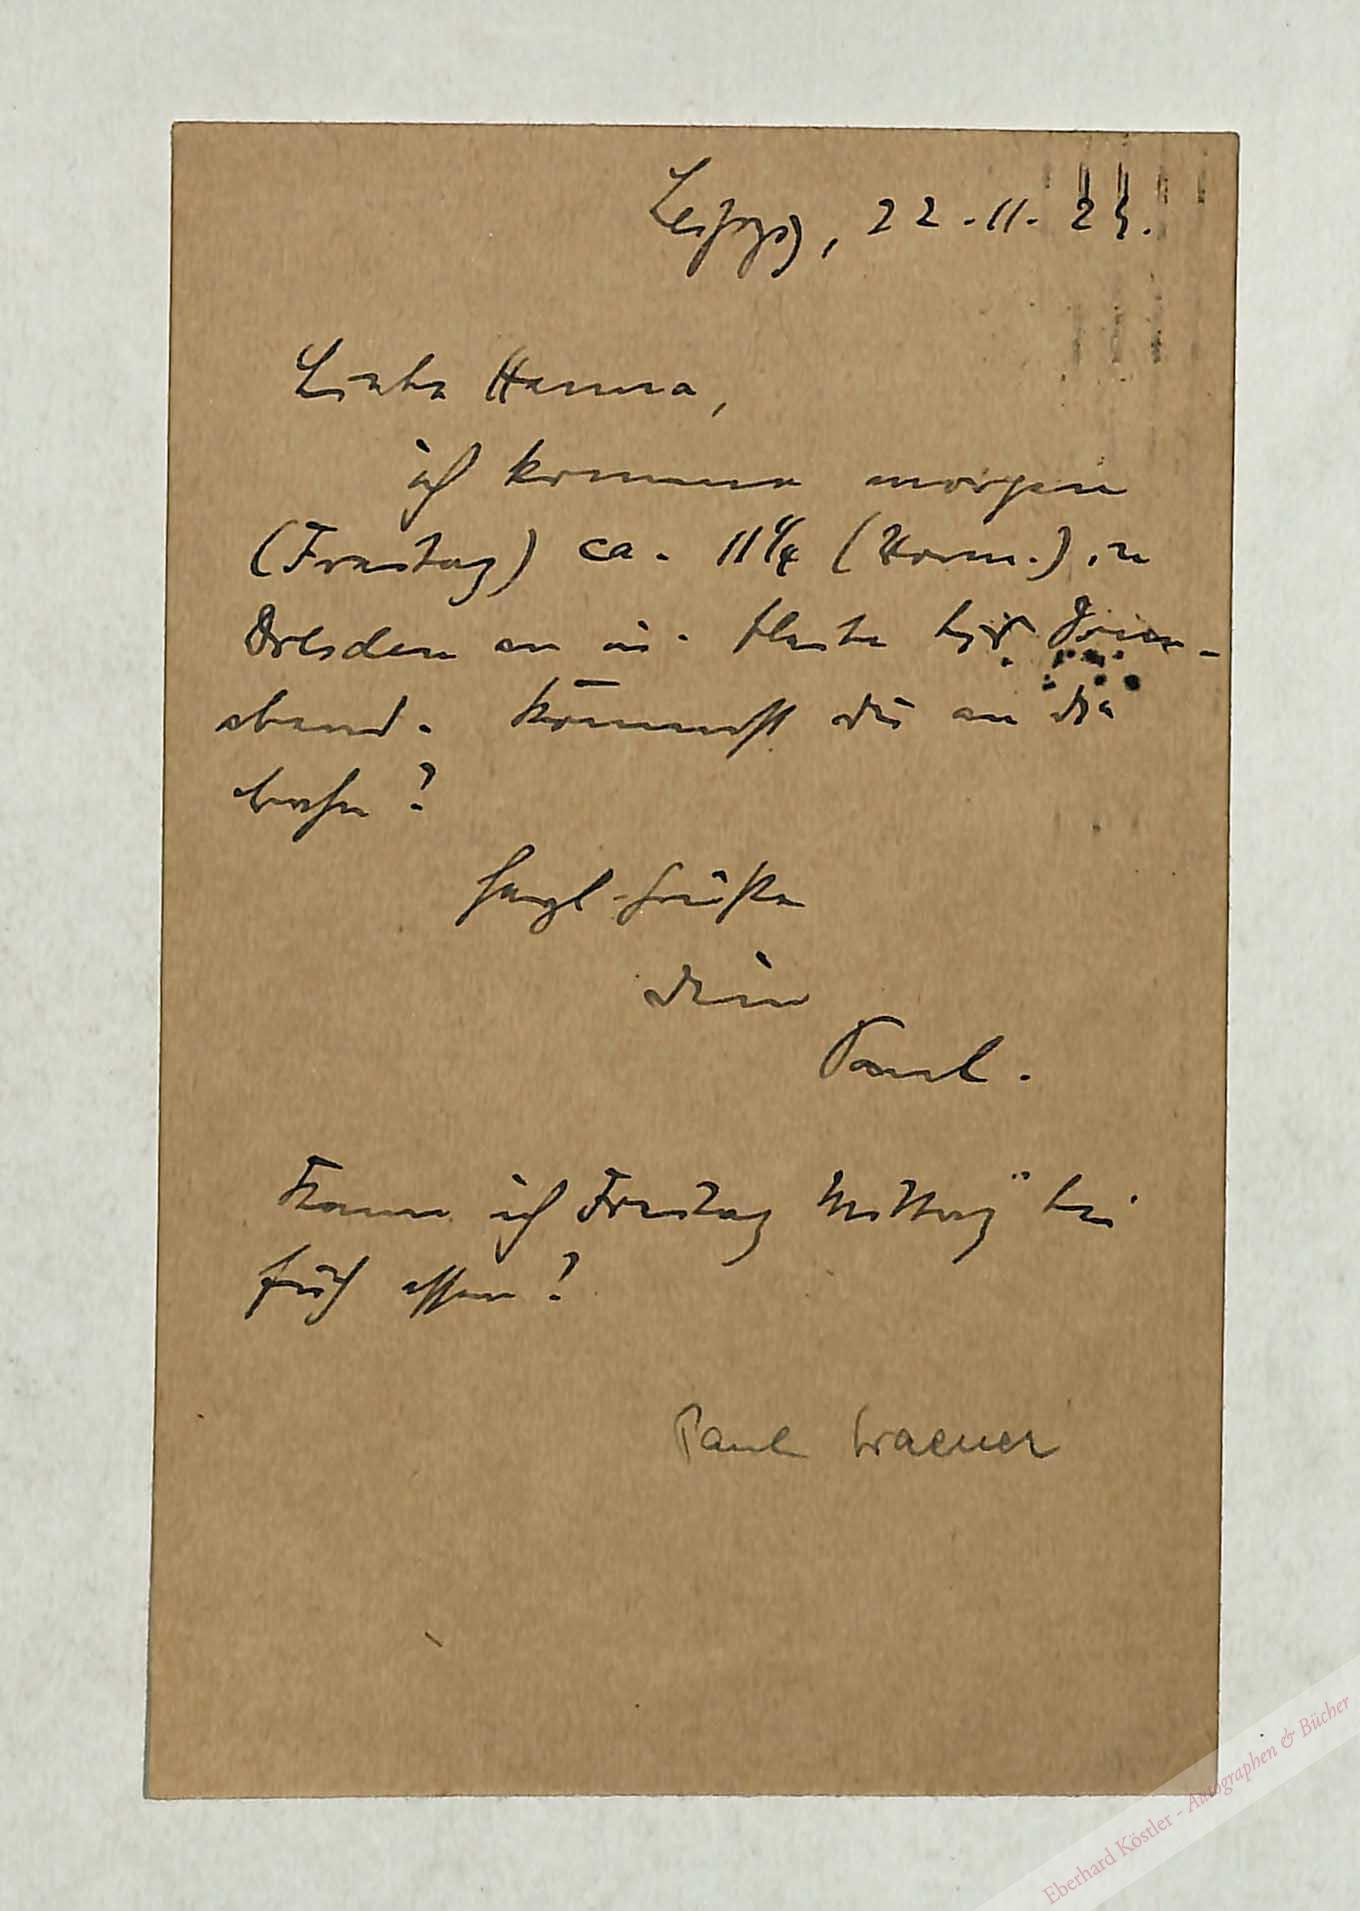 Leipzig, 22.11.23.
Liebe Hanna,
ich komme morgen
(Freitag) ca. 11¼ (Vorm.) in
Dresden an u. bleibe bis Sonn-
abend. Kommst du an die
Bahn?
Herzl. Grüße
Dein
Paul.
Kann ich Freitag Mittag bei
Euch essen?
Paul Graener
Eberhard Köstler - Autographen & Bücher